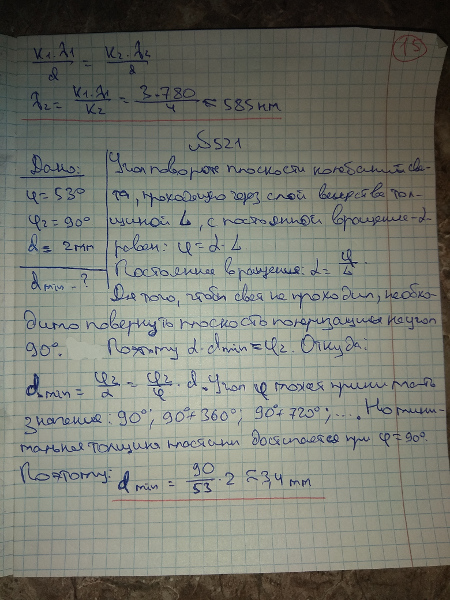 15
K₁·λ₁/d = K₂·λ₂/d
λ₂ = K₁·λ₁/K₂ = 3·780/4 ≈ 585 нм
№521
Дано: Угол поворота плоскости колебаний све-
φ = 53° та, проходящего через слой вещества тол-
φ₂ = 90° щиной L, с постоянной вращения α
d = 2 mm равен: φ = α·L
Постоянная вращения: α = φ/L.
d min - ? Для того, чтобы свет не проходил, необхо-
димо повернуть плоскость поляризации на угол
90°. Поэтому α·d min = φ₂. Откуда:
d min = φ₂/α = φ₂/φ · d. Угол φ может принимать
значения: 90°; 90°+360°; 90°+720°; .... Но мини-
мальная толщина пластины достигается при φ = 90°.
Поэтому: d min = 90/53 · 2 ≈ 3,4 mm